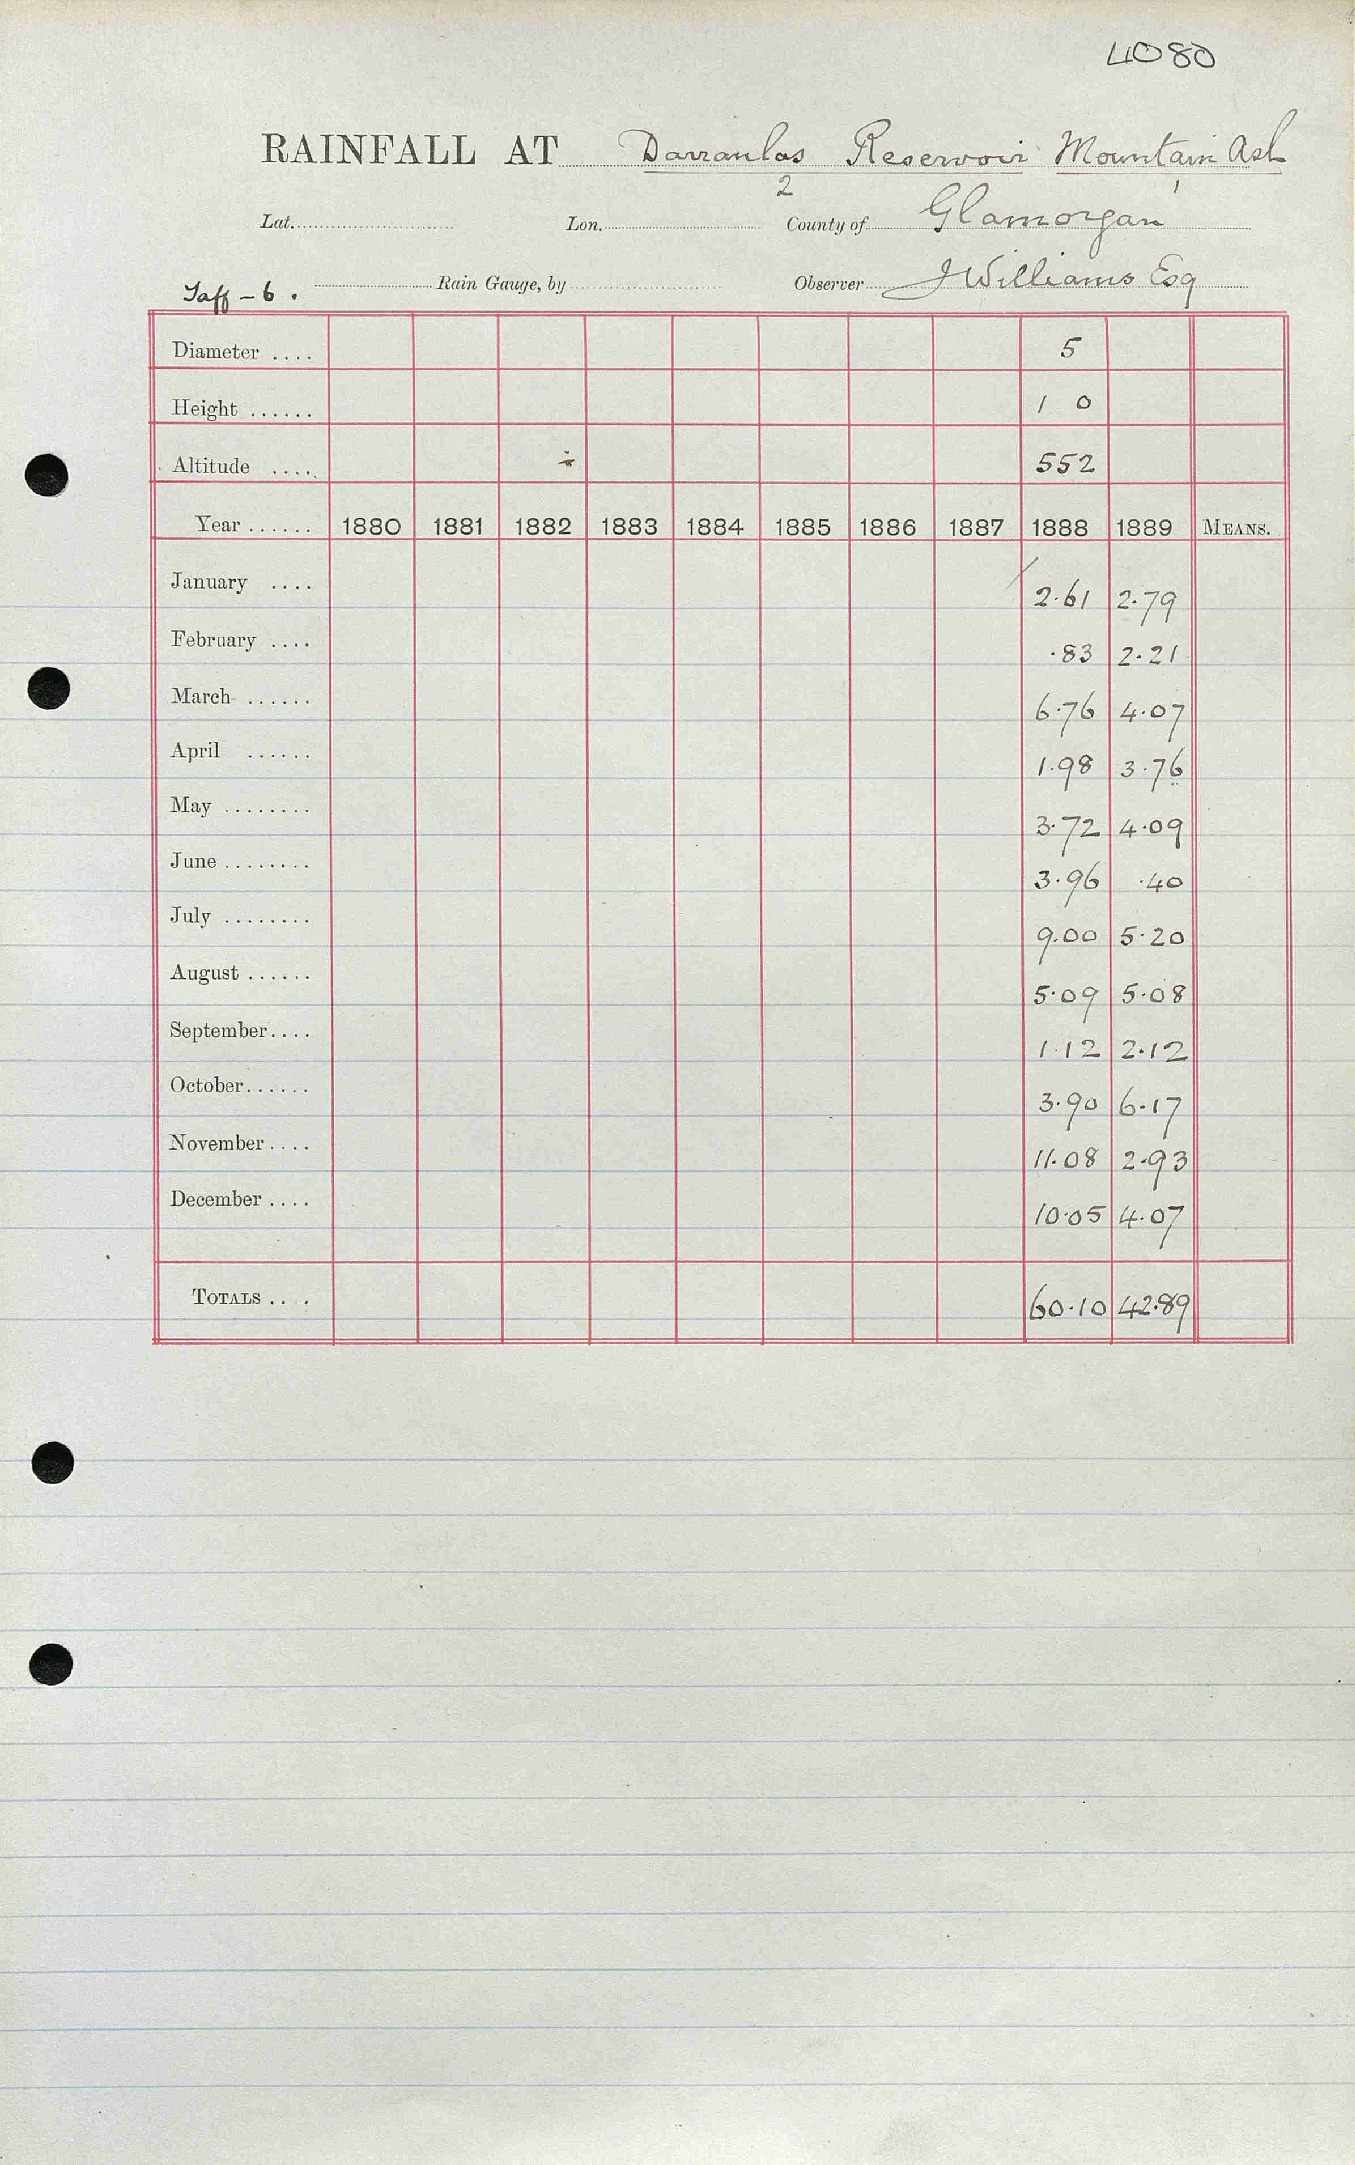 4080
RAINFALL AT Darranlas Reservoir Mountain Ash
2 1
Lat. Lon. County of Glamorgan
Taff - 6. Rain Gauge, by Observer J Williams Esq
Diameter .... 5
Height ...... 1 0
Altitude .... 552
Year ...... 1880 1881 1882 1883 1884 1885 1886 1887 1888 1889 MEANS.
January .... 2.61 2.79
February .... .83 2.21
March ...... 6.76 4.07
April ...... 1.98 3.76
May ........ 3.72 4.09
June ........ 3.96 .40
July ........ 9.00 5.20
August ...... 5.09 5.08
September.... 1.12 2.12
October...... 3.90 6.17
November .... 11.08 2.93
December .... 10.05 4.07
TOTALS .... 60.10 42.89